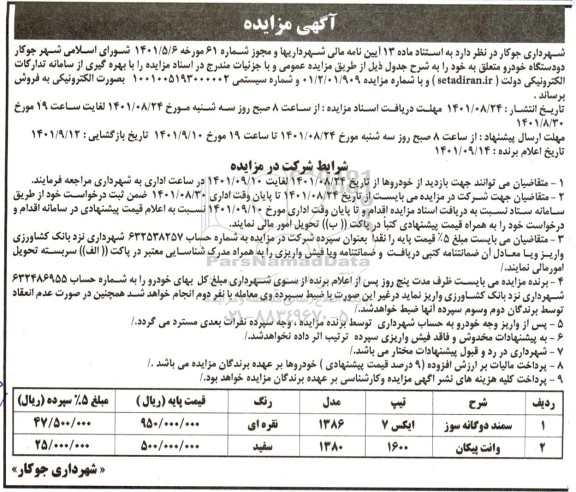 آگهی مزایده
شهرداری جوکار در نظر دارد به استناد ماده ۱۳ آیین نامه مالی شهرداریها و مجوز شماره ۶۱ مورخه ۱۴۰۱/۵/۶ شورای اسلامی شهر جوکار
دودستگاه خودرو متعلق به خود را به شرح جدول ذیل از طریق مزایده عمومی و با جزئیات مندرج در اسناد مزایده را با بهره گیری از سامانه تدارکات
الکترونیکی دولت ( setadiran.ir ) و با شماره مزایده ۰۱/۲/۰۱/۹۰۹ و شماره سیستمی ۱۰۰۱۰۰۵۱۹۳۰۰۰۰۰۲ بصورت الکترونیکی به فروش
برساند .
تاریخ انتشار : ۱۴۰۱/۰۸/۲۴ مهلت دریافت اسناد مزایده : از ساعت ۸ صبح روز سه شنبه مورخ ۱۴۰۱/۰۸/۲۴ لغایت ساعت ۱۹ مورخ
۱۴۰۱/۸/۳۰
مهلت ارسال پیشنهاد : از ساعت ۸ صبح روز سه شنبه مورخ ۱۴۰۱/۰۸/۲۴ تا ساعت ۱۹ مورخ ۱۴۰۱/۹/۱۰ تاریخ بازگشایی : ۱۴۰۱/۹/۱۲
تاریخ اعلام برنده : ۱۴۰۱/۰۹/۱۴
شرایط شرکت در مزایده
۱ - متقاضیان می توانند جهت بازدید از خودروها از تاریخ ۱۴۰۱/۰۸/۲۴ لغایت ۱۴۰۱/۰۹/۱۰ در ساعت اداری به شهرداری مراجعه فرمایند.
۲ - متقاضیان جهت شرکت در مزایده می بایست از تاریخ ۱۴۰۱/۰۸/۲۴ تا پایان وقت اداری ۱۴۰۱/۰۸/۳۰ ضمن ثبت درخواست خود از طریق
سامانه ستاد نسبت به دریافت اسناد مزایده اقدام و تا پایان وقت اداری مورخ ۱۴۰۱/۰۹/۱۰ نسبت به اعلام قیمت پیشنهادی در سامانه اقدام و
درخواست خود را به همراه قیمت پیشنهادی کتبا در پاکت (( ب)) تحویل امور مالی نمایند.
۳ - متقاضیان می بایست مبلغ ۵٪ قیمت پایه را نقدا بعنوان سپرده شرکت در مزایده به شماره حساب ۶۳۲۵۳۸۲۵۷ شهرداری نزد بانک کشاورزی
واریز ویا معادل آن ضمانتنامه کتبی دریافت و ضمانتنامه ویا فیش واریزی را به همراه مدرک شناسایی معتبر در پاکت (( الف)) سربسته تحویل
امورمالی نمایند./
۴ - برنده مزایده می بایست ظرف مدت پنج روز پس از اعلام برنده از سوی شهرداری مبلغ کل بهای خودرو را به شماره حساب ۶۳۲۴۸۶۹۵۵
شهرداری نزد بانک کشاورزی واریز نماید درغیر این صورت با ضبط سپرده وی معامله با نفر دوم انجام خواهد شد همچنین در صورت عدم انعقاد
توسط برندگان دوم وسوم سپرده آنها ضبط خواهدشد./
۵ - پس از واریز وجه خودرو به حساب شهرداری توسط برنده مزایده ، وجه سپرده نفرات بعدی مسترد می گردد./
۶ - به پیشنهادات مخدوش و فاقد فیش واریزی سپرده ترتیب اثر داده نخواهدشد./
۷ - شهرداری در رد و قبول پیشنهادات مختار می باشد./
۸ - پرداخت مالیات بر ارزش افزوده (۹ درصد قیمت پیشنهادی ) خودروها بر عهده برندگان مزایده می باشد ./
۹ - پرداخت کلیه هزینه های نشر آگهی مزایده وکارشناسی بر عهده برندگان مزایده خواهد بود./
ردیف شرح تیپ مدل رنگ قیمت پایه (ریال ) مبلغ ۵٪ سپرده (ریال)
۱ سمند دوگانه سوز ایکس ۷ ۱۳۸۶ نقره ای ۹۵۰/۰۰۰/۰۰۰ ۴۷/۵۰۰/۰۰۰
۲ وانت پیکان ۱۶۰۰ ۱۳۸۰ سفید ۵۰۰/۰۰۰/۰۰۰ ۲۵/۰۰۰/۰۰۰
« شهرداری جوکار»
ParsNamadData
۰۲۱-۸۸۳۴۹۶۷۰-۵